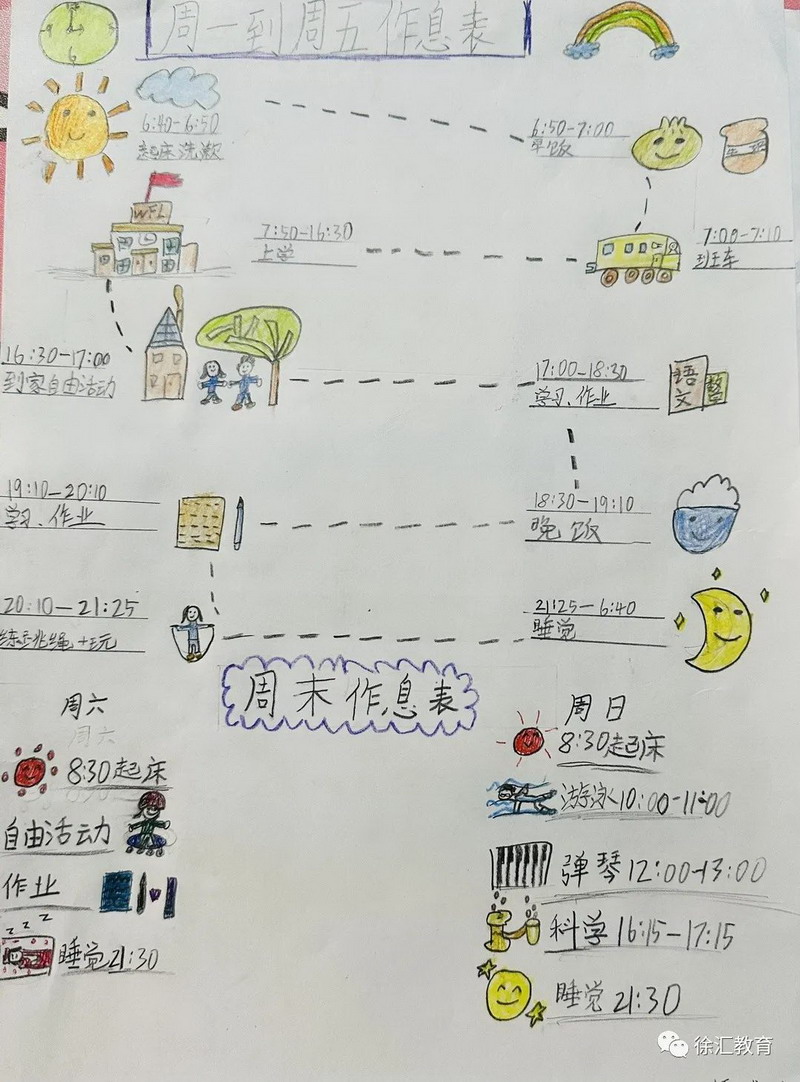 周一到周五作息表
6
6:40-6:50
起床洗漱
6:50-7:00
早饭
WFL
7:50-16:30
上学
7:00-7:10
班车
16:30-17:00
到家自由活动
17:00-18:30
学习、作业
语文
数
19:10-20:10
学习、作业
18:30-19:10
晚饭
20:10-21:25
练跳绳+玩
21:25-6:40
睡觉
周末作息表
周六
周六
8:30起床
自由活动
作业
z z z
睡觉21:30
周日
8:30起床
游泳10:00-11:00
弹琴12:00-13:00
科学16:15-17:15
睡觉21:30
徐汇教育